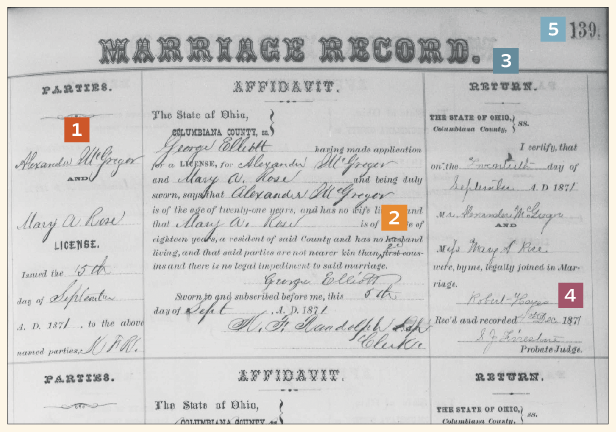 5 139.
MARRIAGE RECORD.
3
PARTIES.
1
Alexander McGregor
AND
Mary A Rose
LICENSE.
Issued the 5th
day of September
A. D. 1871. to the above
named parties.
AFFIDAVIT.
The State of Ohio,
COLUMBIANA COUNTY, ss.
George Elliott having made application
for a LICENSE, for Alexander McGregor
and Mary A. Rose and being duly
sworn, says that Alexander McGregor
is of the age of twenty-one years, and has no wife living and
2
that Mary A. Rose is of
eighteen years, a resident of said County and has no husband
living, and that said parties are not nearer kin than first cous-
ins and there is no legal impediment to said marriage.
George Elliott
Sworn to and subscribed before me, this 5th
day of Sept A. D. 1871
H. F. Randolph
Clerk
RETURN.
THE STATE OF OHIO,
Columbiana County, ss.
I certify, that
on the Twentieth day of
September A. D 1871
Mr. Alexander McGregor
AND
Miss Mary
were, by me, legally joined in Mar-
riage.
4
Robert
Rec'd and recorded 1871
Probate Judge.
PARTIES.
AFFIDAVIT.
The State of Ohio,
COLUMBIANA COUNTY, ss.
RETURN.
THE STATE OF OHIO,
Columbiana County, ss.